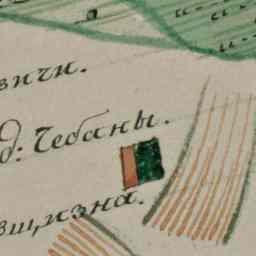 вичи.
д: Чебаны.
вщизна.